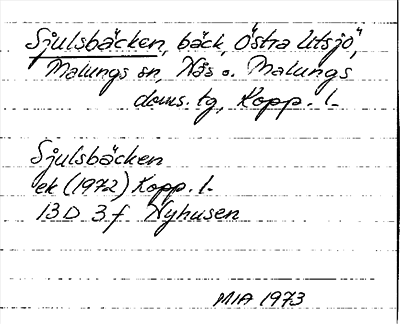 Sjulsbäcken, bäck, Östra Utsjö,
Malungs sn, Nås o. Malungs
doms. tg, Kopp. l.
Sjulsbäcken
ek (1972) Kopp. l.
13D 3f Nyhusen
MIA 1973